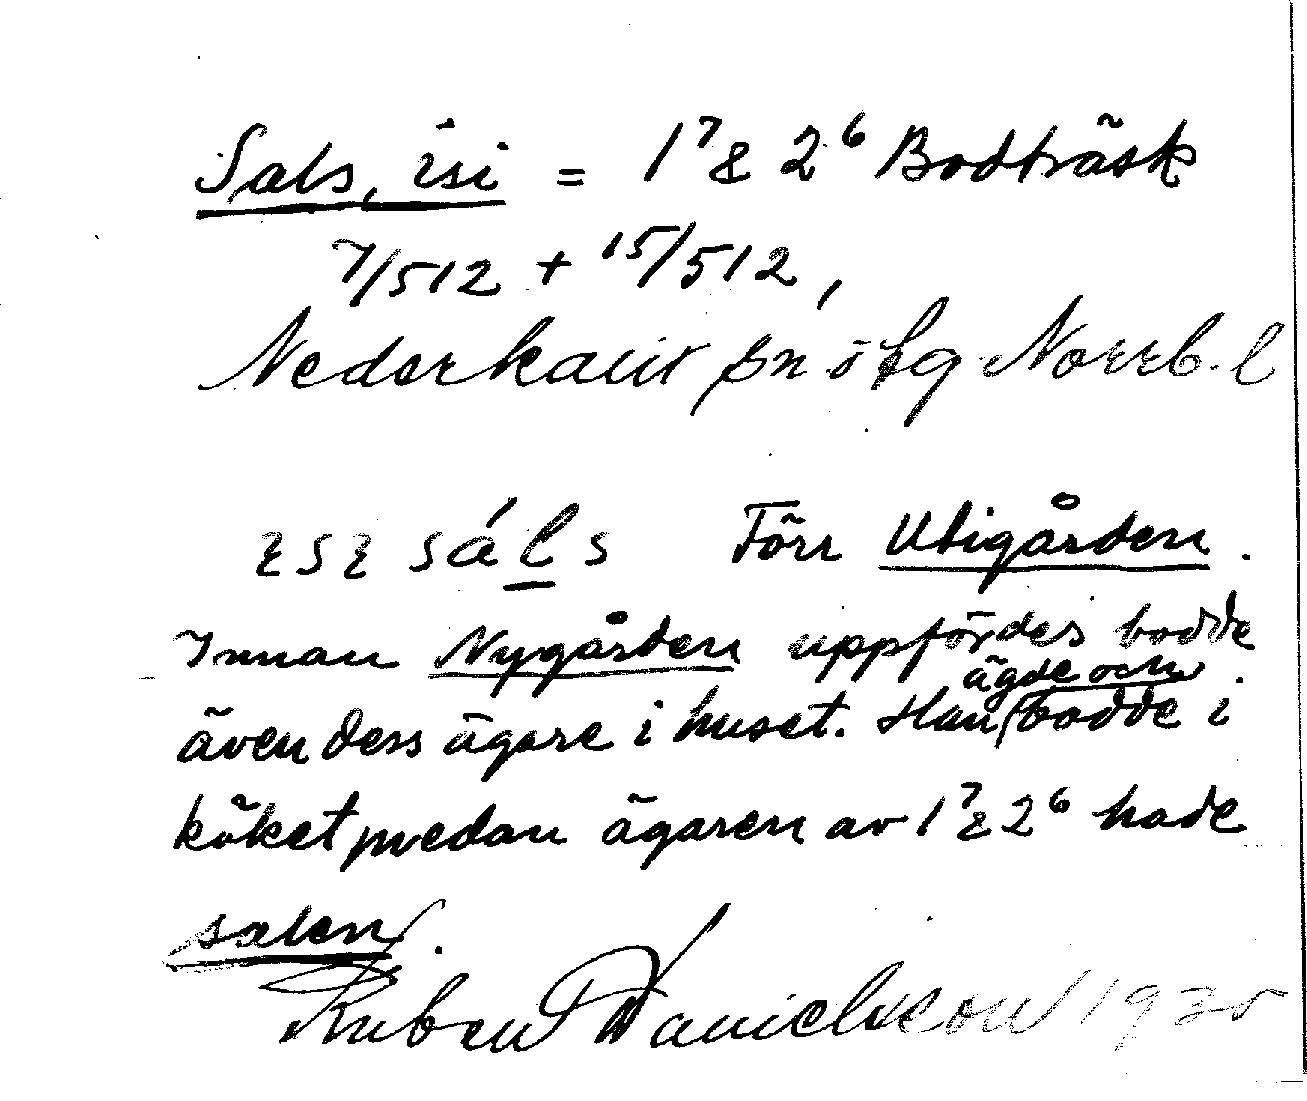 Sals, isi = 1⁷ & 2⁶ Bodträsk
7/512 + 15/512,
Nederkalix sn ö fg Norrb. l
sáls Förr Utigården.
Innan Nygården uppfördes bodde
även dess ägare i huset. Han ägde och bodde i
köket medan ägaren av 1⁷ & 2⁶ hade
salen.
Ruben Danielsson 1935